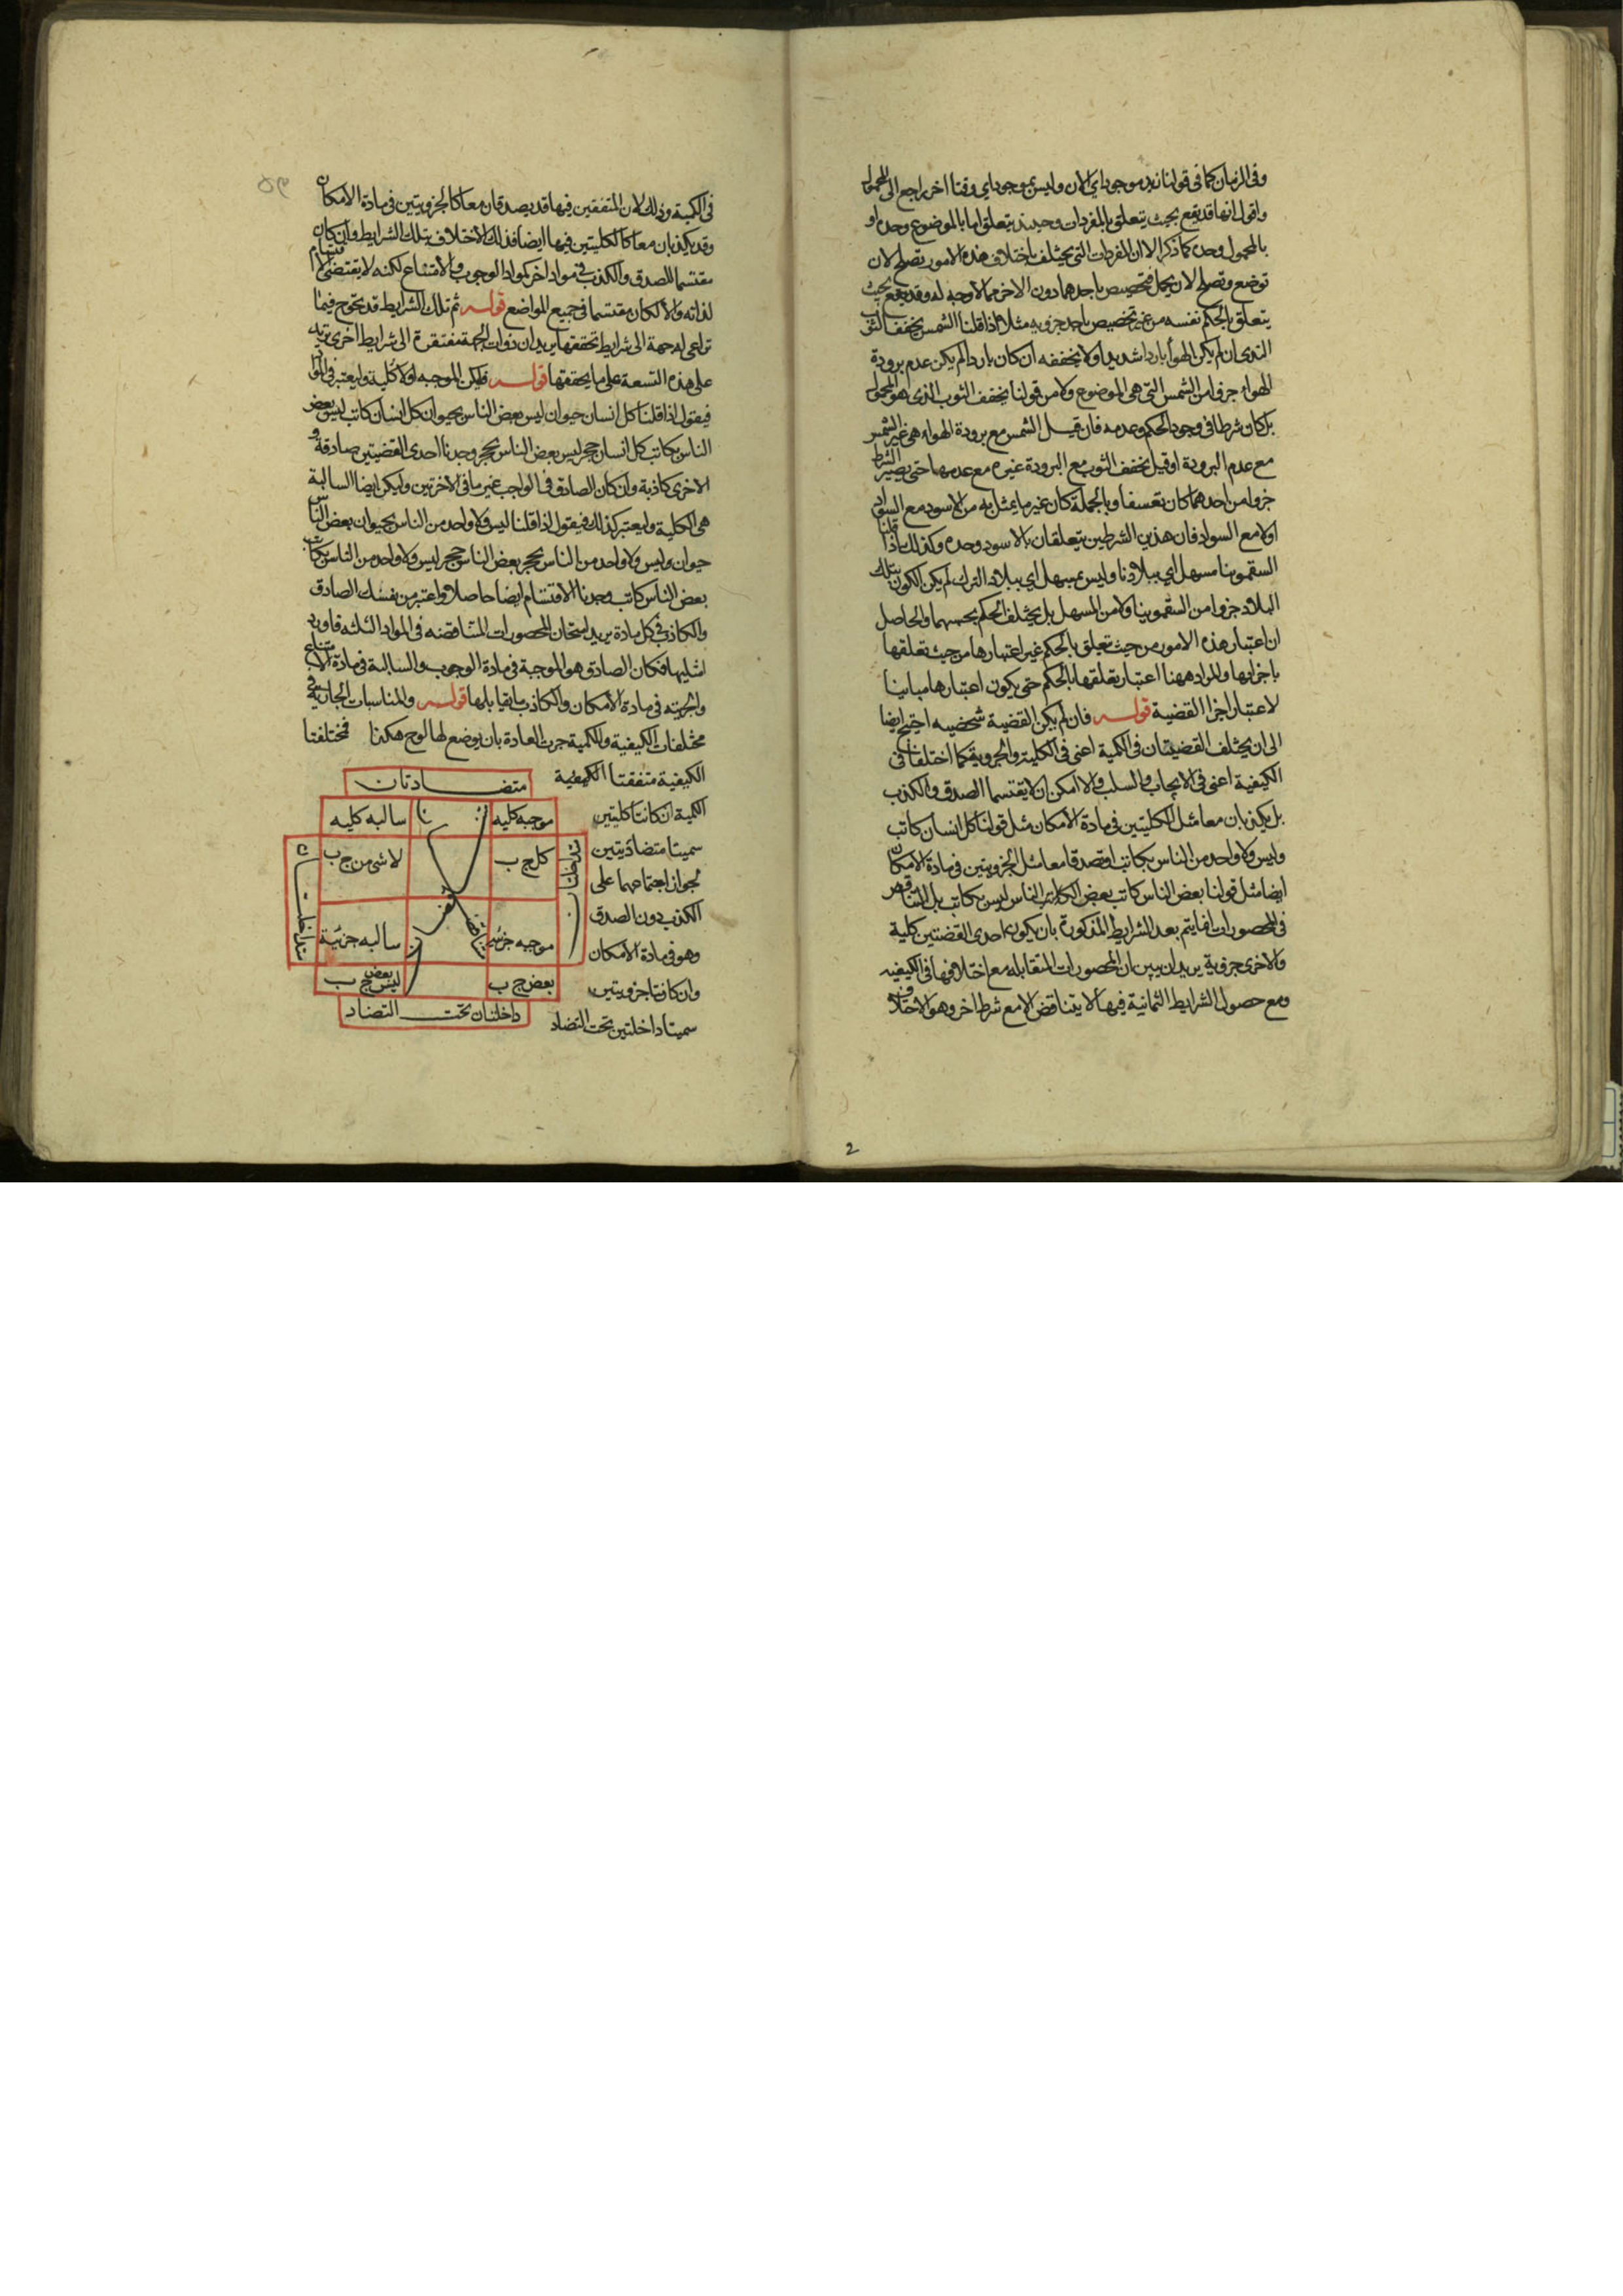 وفى الزمان كما فى قولنا زيد موجود اي الان وليس بموجود اي وقتا اخر راجع الى المحمول
واقول انها قد يقع بحيث يتعلق بالمفردات وحينئذ يتعلق اما بالموضوع وحده او
بالمحمول وحده كما ذكر الا ان المفردات التى يختلف باختلاف هذه الامور تصلح لان
توضع وتصلح لان يحمل فتخصيص باحدهما دون الاخر مما لا وجه له وقد يقع بحيث
يتعلق بالحكم نفسه من غير تخصيص باحد جزويه مثلا اذا قلنا الشمس يجفف الثوب
الندى ان لم يكن الهوا باردا شديدا ولا يجففه ان كان باردا لم يكن عدم برودة
الهواء جزوا من الشمس التى هى الموضوع ولا من قولنا يجفف الثوب الذى هو المحمول
بل كان شرطا فى وجود الحكم وعدمه فان قيل الشمس مع برودة الهواء هى غير الشمس
مع عدم البرودة او قيل يجفف الثوب مع البرودة غيره مع عدمها حتى يصير الشرط
جزوا من احدهما كان تعسفا وبالجملة كان غير ما يمثل به من الاسود مع السواد
اولا مع السواد فان هذين الشرطين يتعلقان بالاسود وحده وكذلك اذا قلنا
السقمونيا مسهل اي ببلادنا وليس بمسهل اي ببلاد الترك لم يكن الكون بتلك
البلاد جزوا من السقمونيا ولا من المسهل بل يختلف الحكم بحسبهما والحاصل
ان اعتبار هذه الامور من حيث تعلق بالحكم غير اعتبارها من حيث تعلقها
باجزائها والمراد ههنا اعتبار تعلقها بالحكم حتى يكون اعتبارها مباينا
لاعتبار اجزا القضية قوله فان لم يكن القضية شخصيه احتيج ايضا
الى ان يختلف القضيتان فى الكمية اعنى فى الكلية والجزوية كما اختلفا فى
الكيفية اعنى فى الايجاب والسلب والا امكن ان لا يقتسما الصدق والكذب
بل يكذبان معا مثل الكليتين فى مادة الامكان مثل قولنا كل انسان كاتب
وليس ولا واحد من الناس بكاتب او تصدقا معا مثل الجزويتين فى مادة الامكان
ايضا مثل قولنا بعض الناس كاتب بعض الناس ليس بكاتب بل التناقض
فى المحصورات انما يتم بعد الشرايط المذكورة بان يكون احدى القضتين كلية
والاخرى جزوية يريد ان يبين ان المحصورات المتقابله مع اختلافها فى الكيفيه
ومع حصول الشرايط الثمانية فيها لا يتناقض الا مع شرط اخر وهو الاختلاف
2
فى الكمية وذلك لان المتفقين فيها قد يصدقان معا كالجزويتين فى مادة الامكان
وقد يكذبان معا كالكليتين فيها ايضا فذلك الاختلاف بتلك الشرايط وان كان
مقتسما للصدق والكذب فى مواد اخر كمواد الوجوب والامتناع لكنه لا يقتضى الاقتسام
لذاته والا لكان مقتسما فى جميع المواضع قوله ثم تلك الشرايط قد تحوج فيما
تراعى له جهة الى شرايط تحققها يريد ان ذوات الجهة مفتقرة الى شرايط اخرى تزيد
على هذه التسعة على ما يحققها قوله فليكن الموجبه اولا كلية وليعتبر فى المواد
فيقول اذا قلنا كل انسان حيوان ليس بعض الناس بحيوان كل انسان كاتب ليس بعض
الناس بكاتب كل انسان حجر ليس بعض الناس بحجر وجدنا احدى القضيتين صادقة و
الاخرى كاذبة وان كان الصادق فى الواجب غير ما فى الاخرتين وليكن ايضا السالبة
هى الكلية وليعتبر كذلك فيقول اذا قلنا ليس ولا واحد من الناس بحيوان بعض الناس
حيوان وليس ولا واحد من الناس بحجر بعض الناس حجر ليس ولا واحد من الناس بكاتب
بعض الناس كاتب وجدنا الاقتسام ايضا حاصلا واعتبر من نفسك الصادق
والكاذب فى كل مادة يريد امتحان المحصورات المتناقضه فى المواد الثلثه فاورد
امثلتها فكان الصادق هو الموجبة فى مادة الوجوب والسالبة فى مادة الامتناع
والجزيه فى مادة الامكان والكاذب ما يقابلها قوله والمناسبات الجارية فى
مختلفات الكيفية والكمية جرت العادة بان يوضع لها لوح هكذا فمختلفتا
الكيفية متفقتا الكمية
الكمية ان كانتا كليتين
سميتا متضادتين
لجواز اجتماعهما على
الكذب دون الصدق
وهو فى مادة الامكان
وان كانتا جزويتين
سميتا داخلتين تحت التضاد
متضادتان
موجبه كليه
سالبه كليه
كل ج ب
لا شى من ج ب
متداخلتان
متداخلتان
متناقضتان
موجبه جزئيه
سالبه جزئية
بعض ج ب
ليس بعض ج ب
داخلتان تحت التضاد